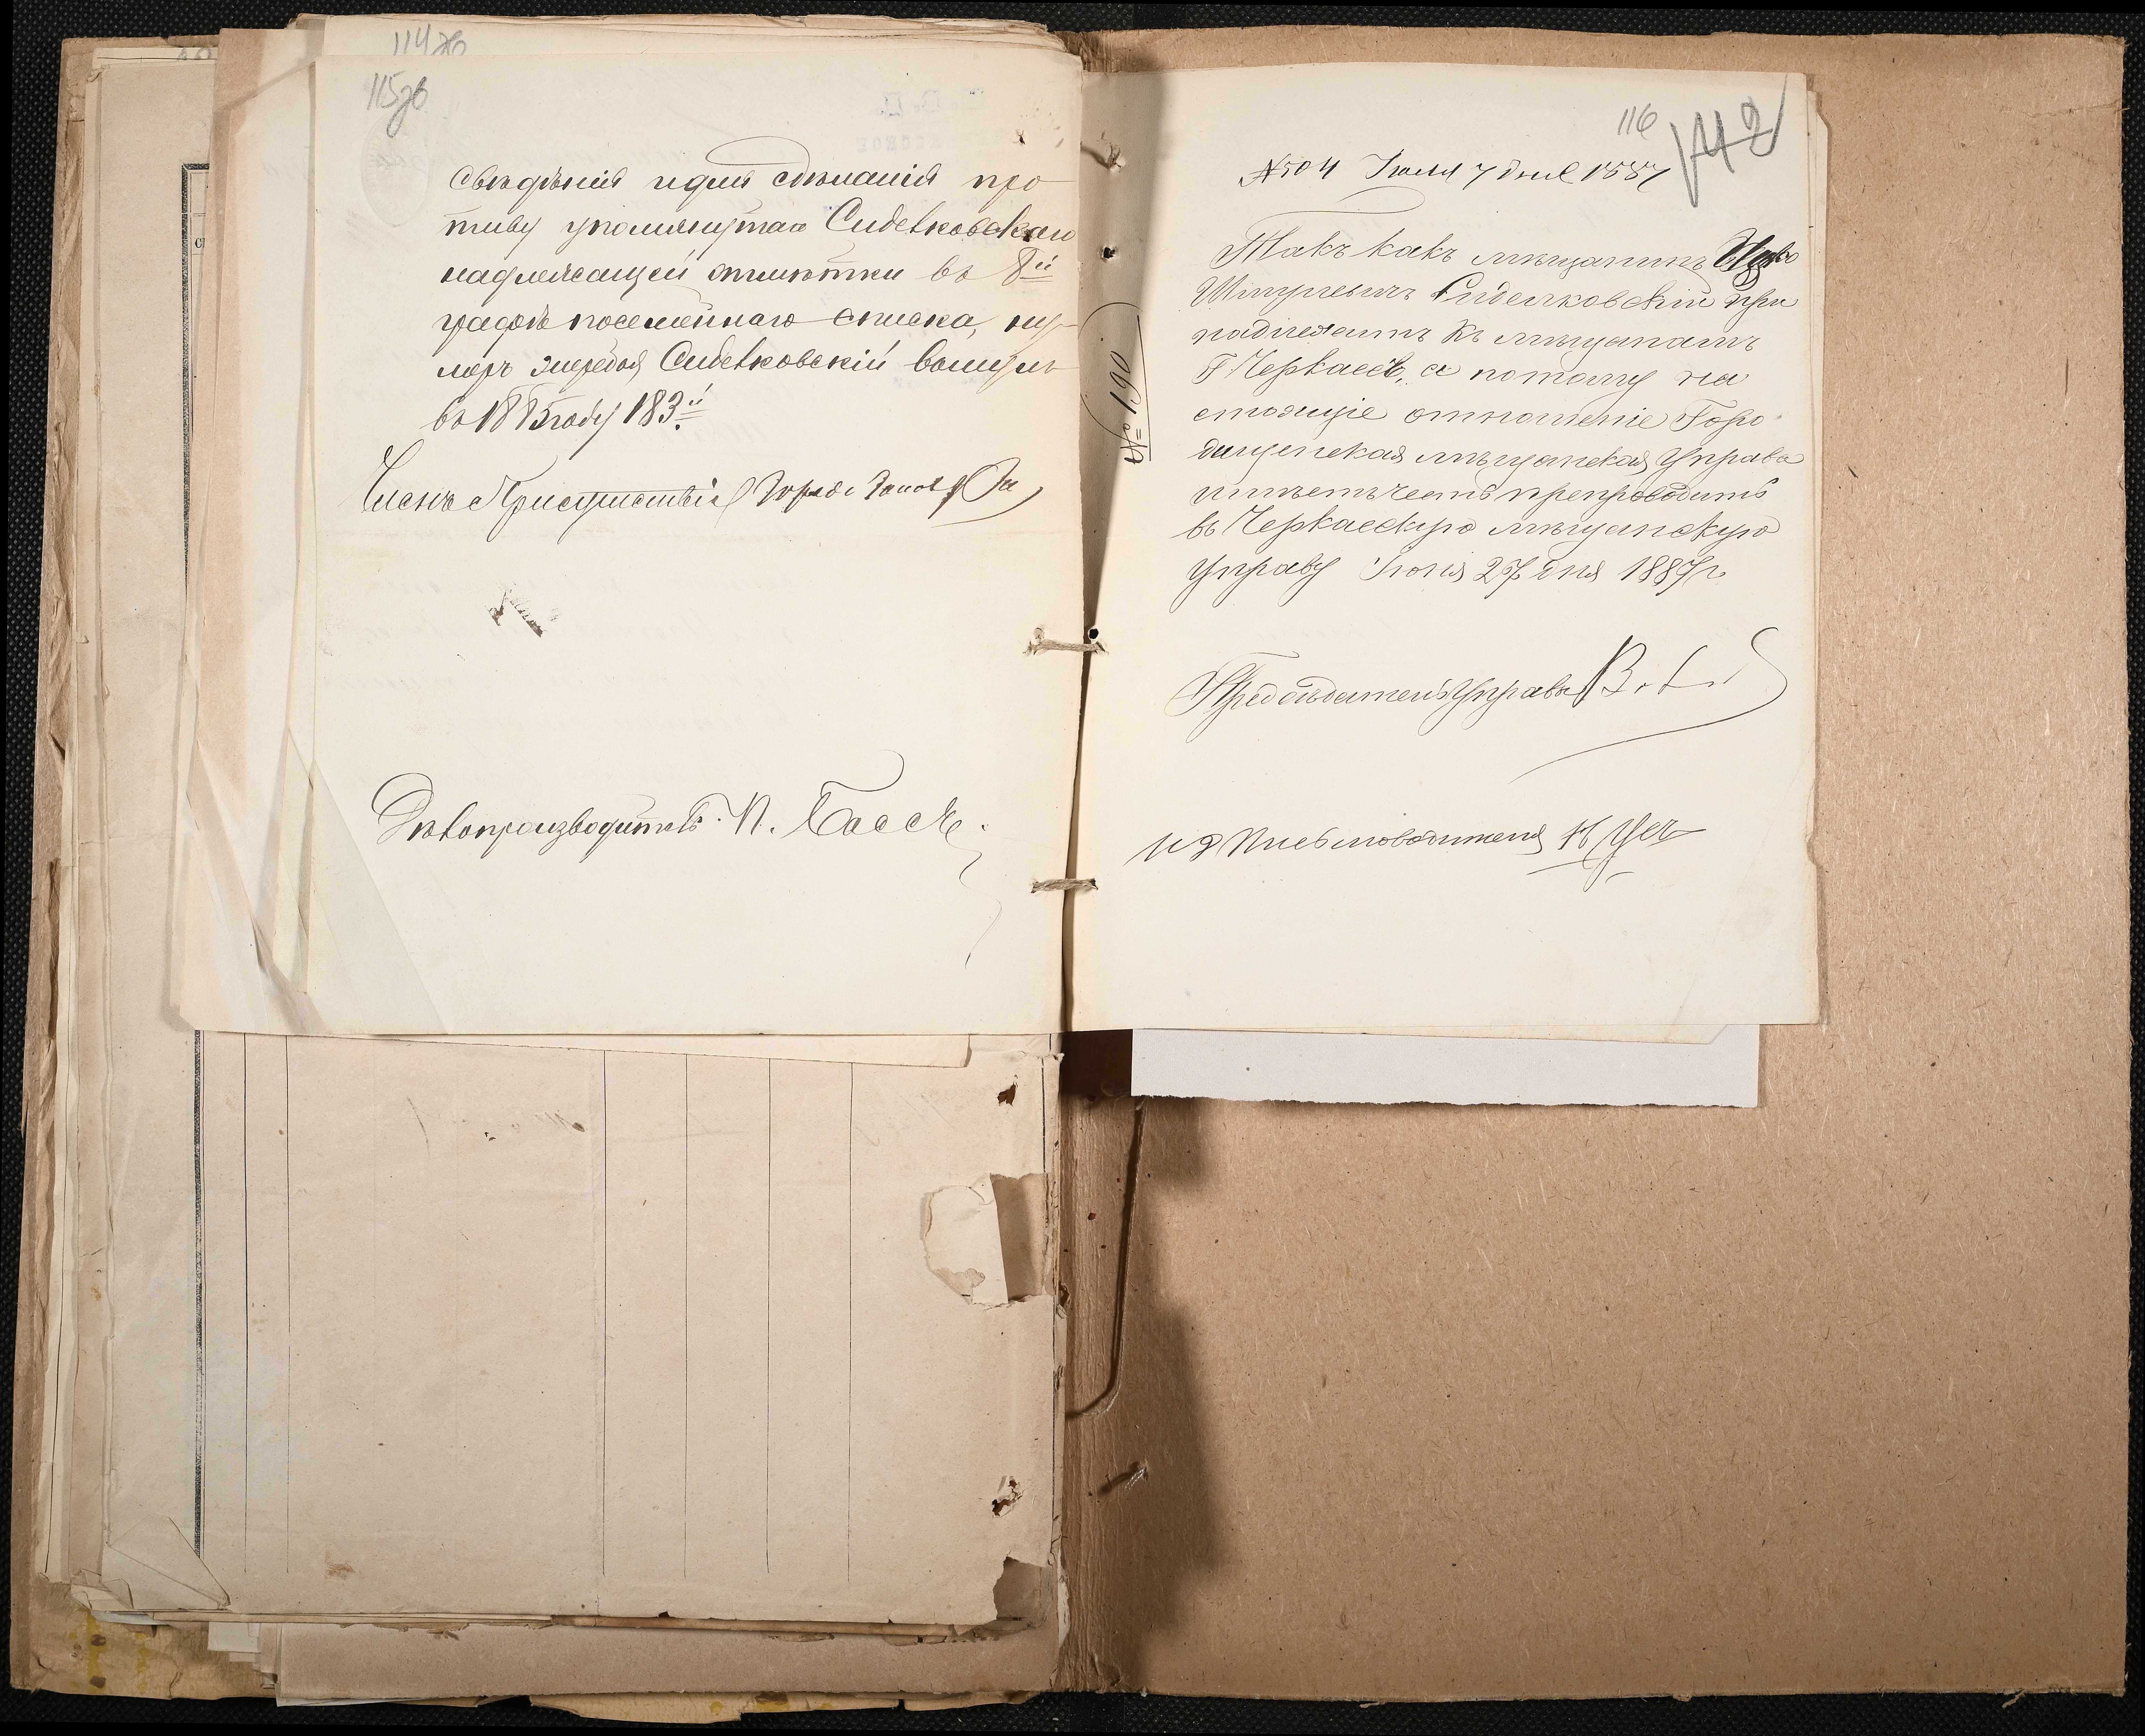 114 об
115 об
свѣдѣнія и для сдѣланія про
тиву упомянутаго Сидельковскаго
надлежащей отмѣтки въ 8й
графѣ посемейнаго списка, ну-
меръ жеребья Сидельковскій вынулъ
въ 1885 году 183й
Членъ Присутствія Городс
Дѣлопроизводитель П. Басс
116
142
№ 504 Іюля 7 дня 1887
№ 190
Такъ какъ мѣщанинъ
Шмулевичъ Сидельковскій при
надлежитъ къ мѣщанамъ
г Черкассъ, а потому на
стоящіе отношеніе Горо
дищенская мѣщанская Управа
имѣетъ честь препроводить
въ Черкасскую мѣщанскую
Управу Іюня 27 дня 1887 г
Предсѣдатель Управы
И Д Письмоводителя